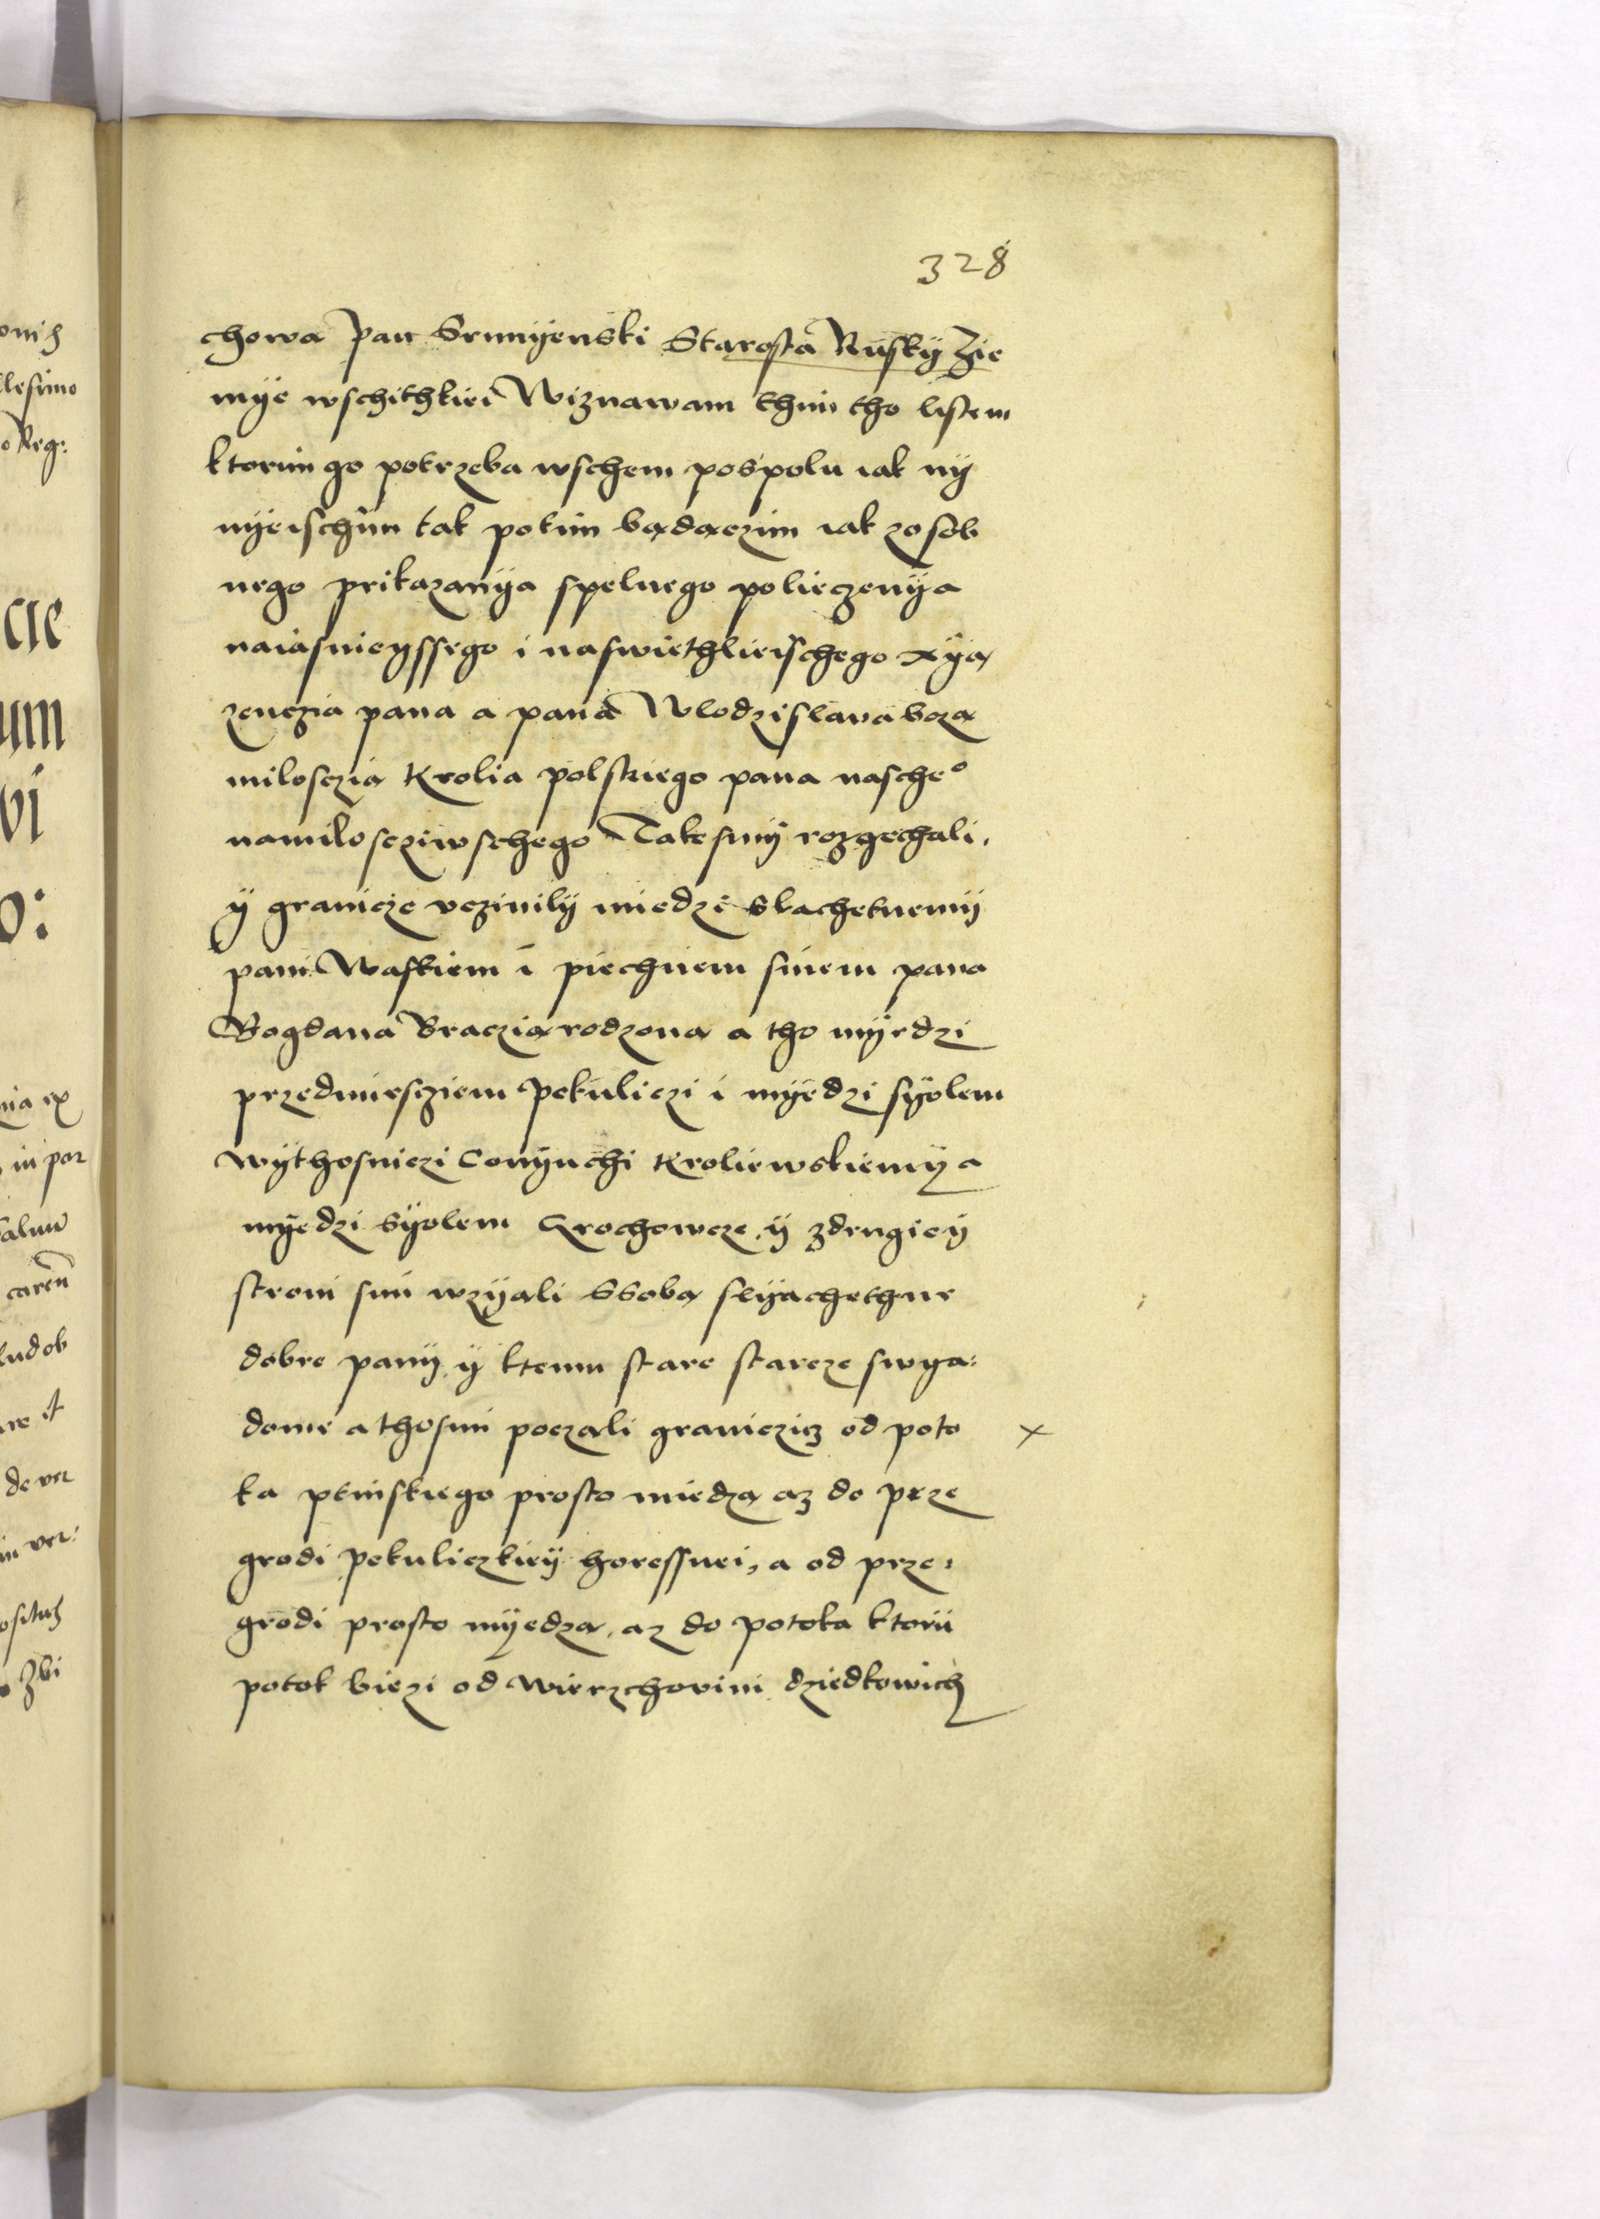 328
chowa Pan Srumyenski Starosta Rusky Zie
mye wschithkiei Wiznawam thim tho listem
ktorim go potrzeba wschem pospolu iak ny
nyeischim tak potim bądączim iak zosob
nego prikazanya spelnego polieczenya
naiasnieyssego i naswiethlieischego xyą
zenczia pana a pana Wlodzislava bozą
milosczią Krolia polskiego pana nasche°
namiloscziwschego Takesmy rozgechali,
y granicze vczinily miedze slachetnemy
pani Waskiem i piechnem sinem pana
Bogdana Braczią rodzoną a tho myedzi
przedmiescziem Pekuliczi i myedzi syolem
wythosniczi Conynchi Kroliewskiemy a
myedzi syolem Grochowcze, y zdrugiey
stroni smi wzyali ssobą slyachethne
dobre pany, y ktemu stare starcze swya:
dome a thosmi poczali granicziz od poto
ka ptinskiego prosto miedzą az do prze
grodi pekuliczkiey horessnei, a od prze:
grodi prosto myedzą, az do potoka ktorii
potok biezi od wierzchovini dziedkowich
x